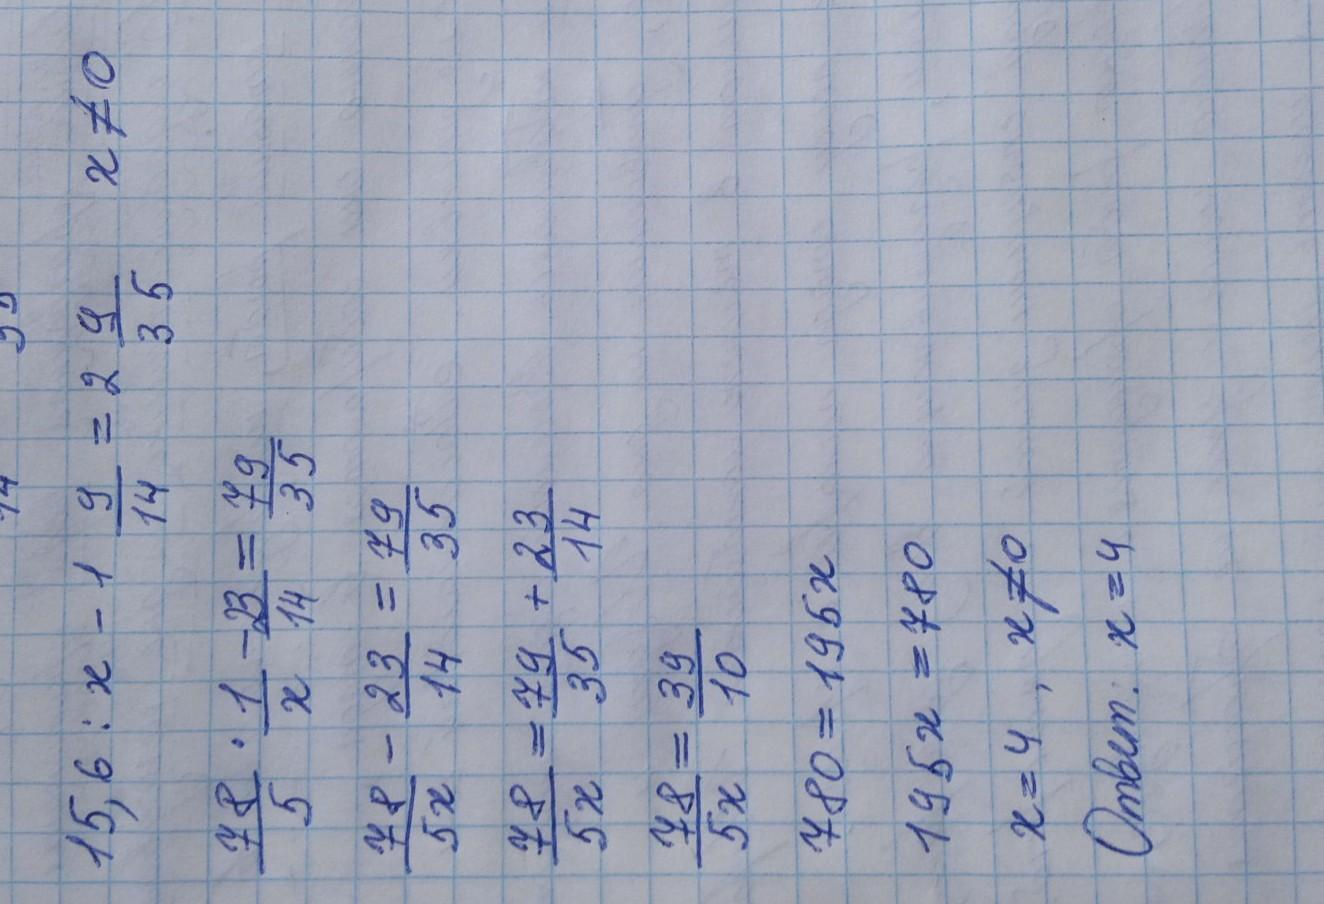 14 35
15,6 : x - 1 9/14 = 2 9/35 x ≠ 0
78/5 · 1/x - 23/14 = 79/35
78/5x - 23/14 = 79/35
78/5x = 79/35 + 23/14
78/5x = 39/10
780 = 195x
195x = 780
x = 4 , x ≠ 0
Ответ: x = 4